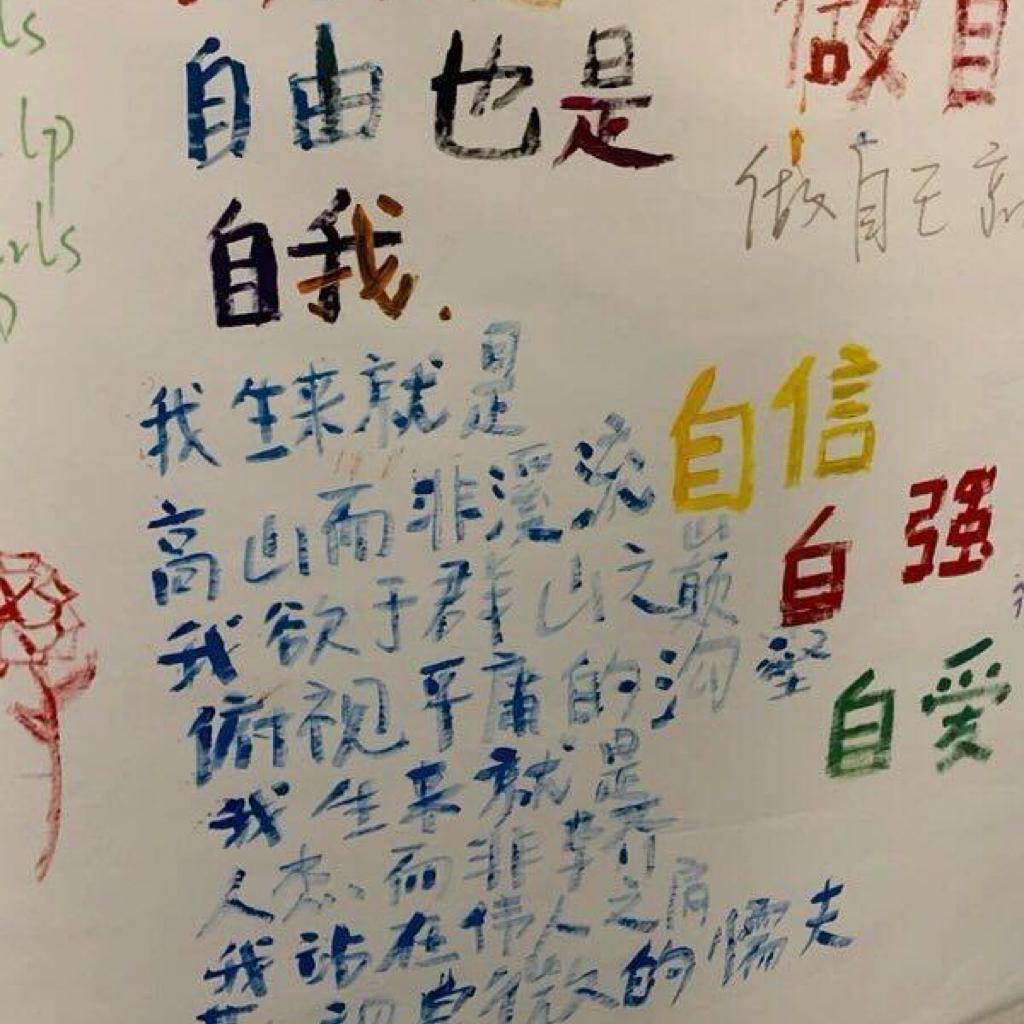 ls
lp
rls
自由也是
自我.
我生来就是
高山而非溪流
我欲于群山之巅
俯视平庸的沟壑
我生来就是
人杰而非草芥
我站在伟人之肩
视卑微的懦夫
做自
做自己就
自信
自强
自爱